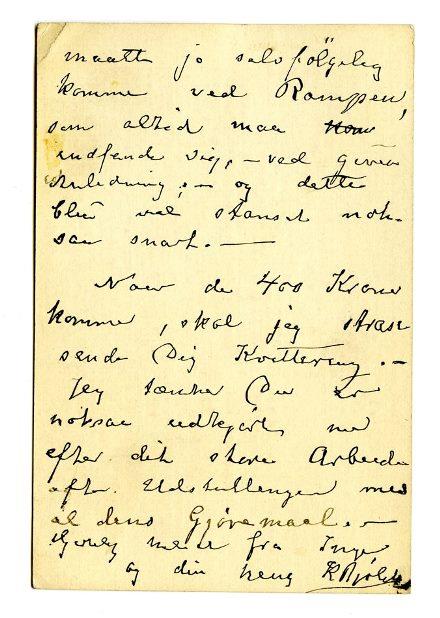 maatte jo selvfölgelig
komme ved Rampen,
som altid maa
indfinde sig, – ved given
Anledning; – og dette
blev vel stanset nok-
saa snart. —
Naar de 400 Kroner
komme, skal jeg strax
sende Dig Kvittering. –
Jeg tænker Du er
noksaa udkjört nu
efter dit store Arbeide
efter Udstillingen med
al dens Gjöremaal. –
hilsen fra Inga
og din heng